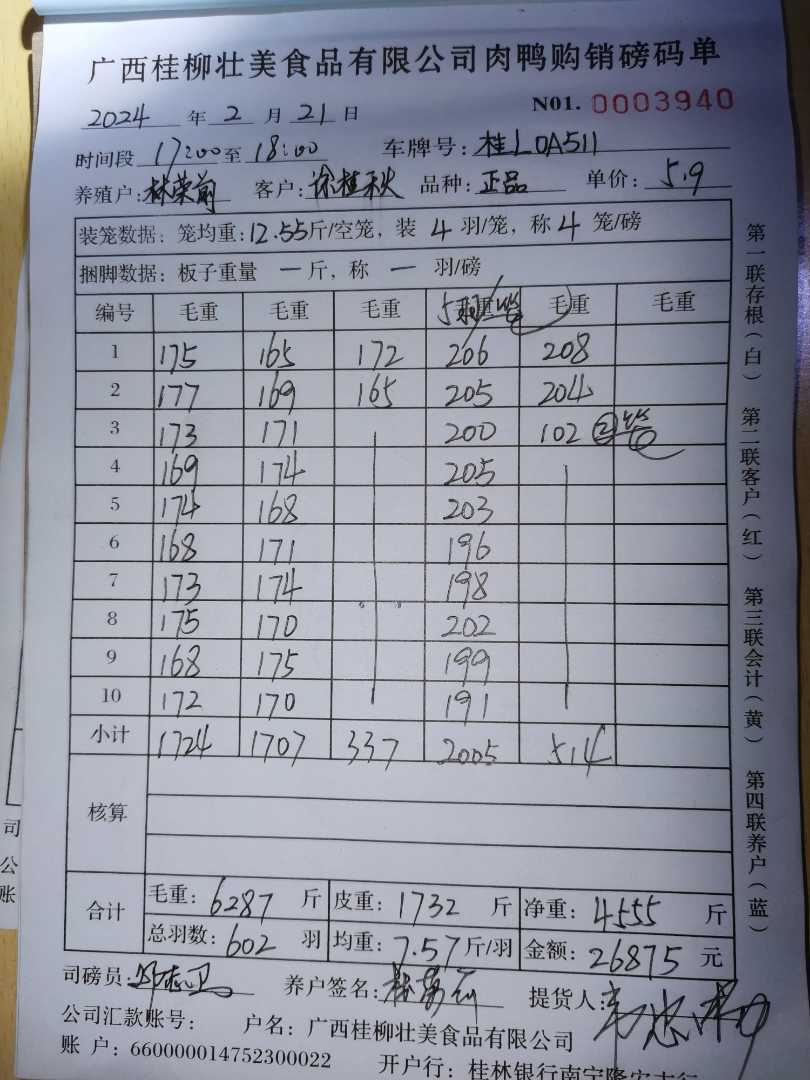 广西桂柳壮美食品有限公司肉鸭购销磅码单
2024 年 2 月 21 日 N01. 0003940
时间段 17:00 至 18:00 车牌号: 桂L0A511
养殖户: 林荣前 客户: 徐桂秋 品种: 正品 单价: 5.9
装笼数据: 笼均重: 12.55斤/空笼, 装 4 羽/笼, 称 4 笼/磅
捆脚数据: 板子重量 一 斤, 称 一 羽/磅
编号 毛重 毛重 毛重 毛重 毛重
1 175 165 172 206 208
2 177 169 165 205 204
3 173 171 200 102 ②笼
4 169 174 205
5 174 168 203
6 168 171 196
7 173 174 198
8 175 170 202
9 168 175 199
10 172 170 191
小计 1724 1707 337 2005 514
核算
合计 毛重: 6287 斤 皮重: 1732 斤 净重: 4555 斤
总羽数: 602 羽 均重: 7.57 斤/羽 金额: 26875 元
司磅员: 养户签名: 提货人:
公司汇款账号: 户名: 广西桂柳壮美食品有限公司
账 户: 660000014752300022 开户行: 桂林银行南宁隆安支行
第一联存根(白) 第二联客户(红) 第三联会计(黄) 第四联养户(蓝)
司
公
账